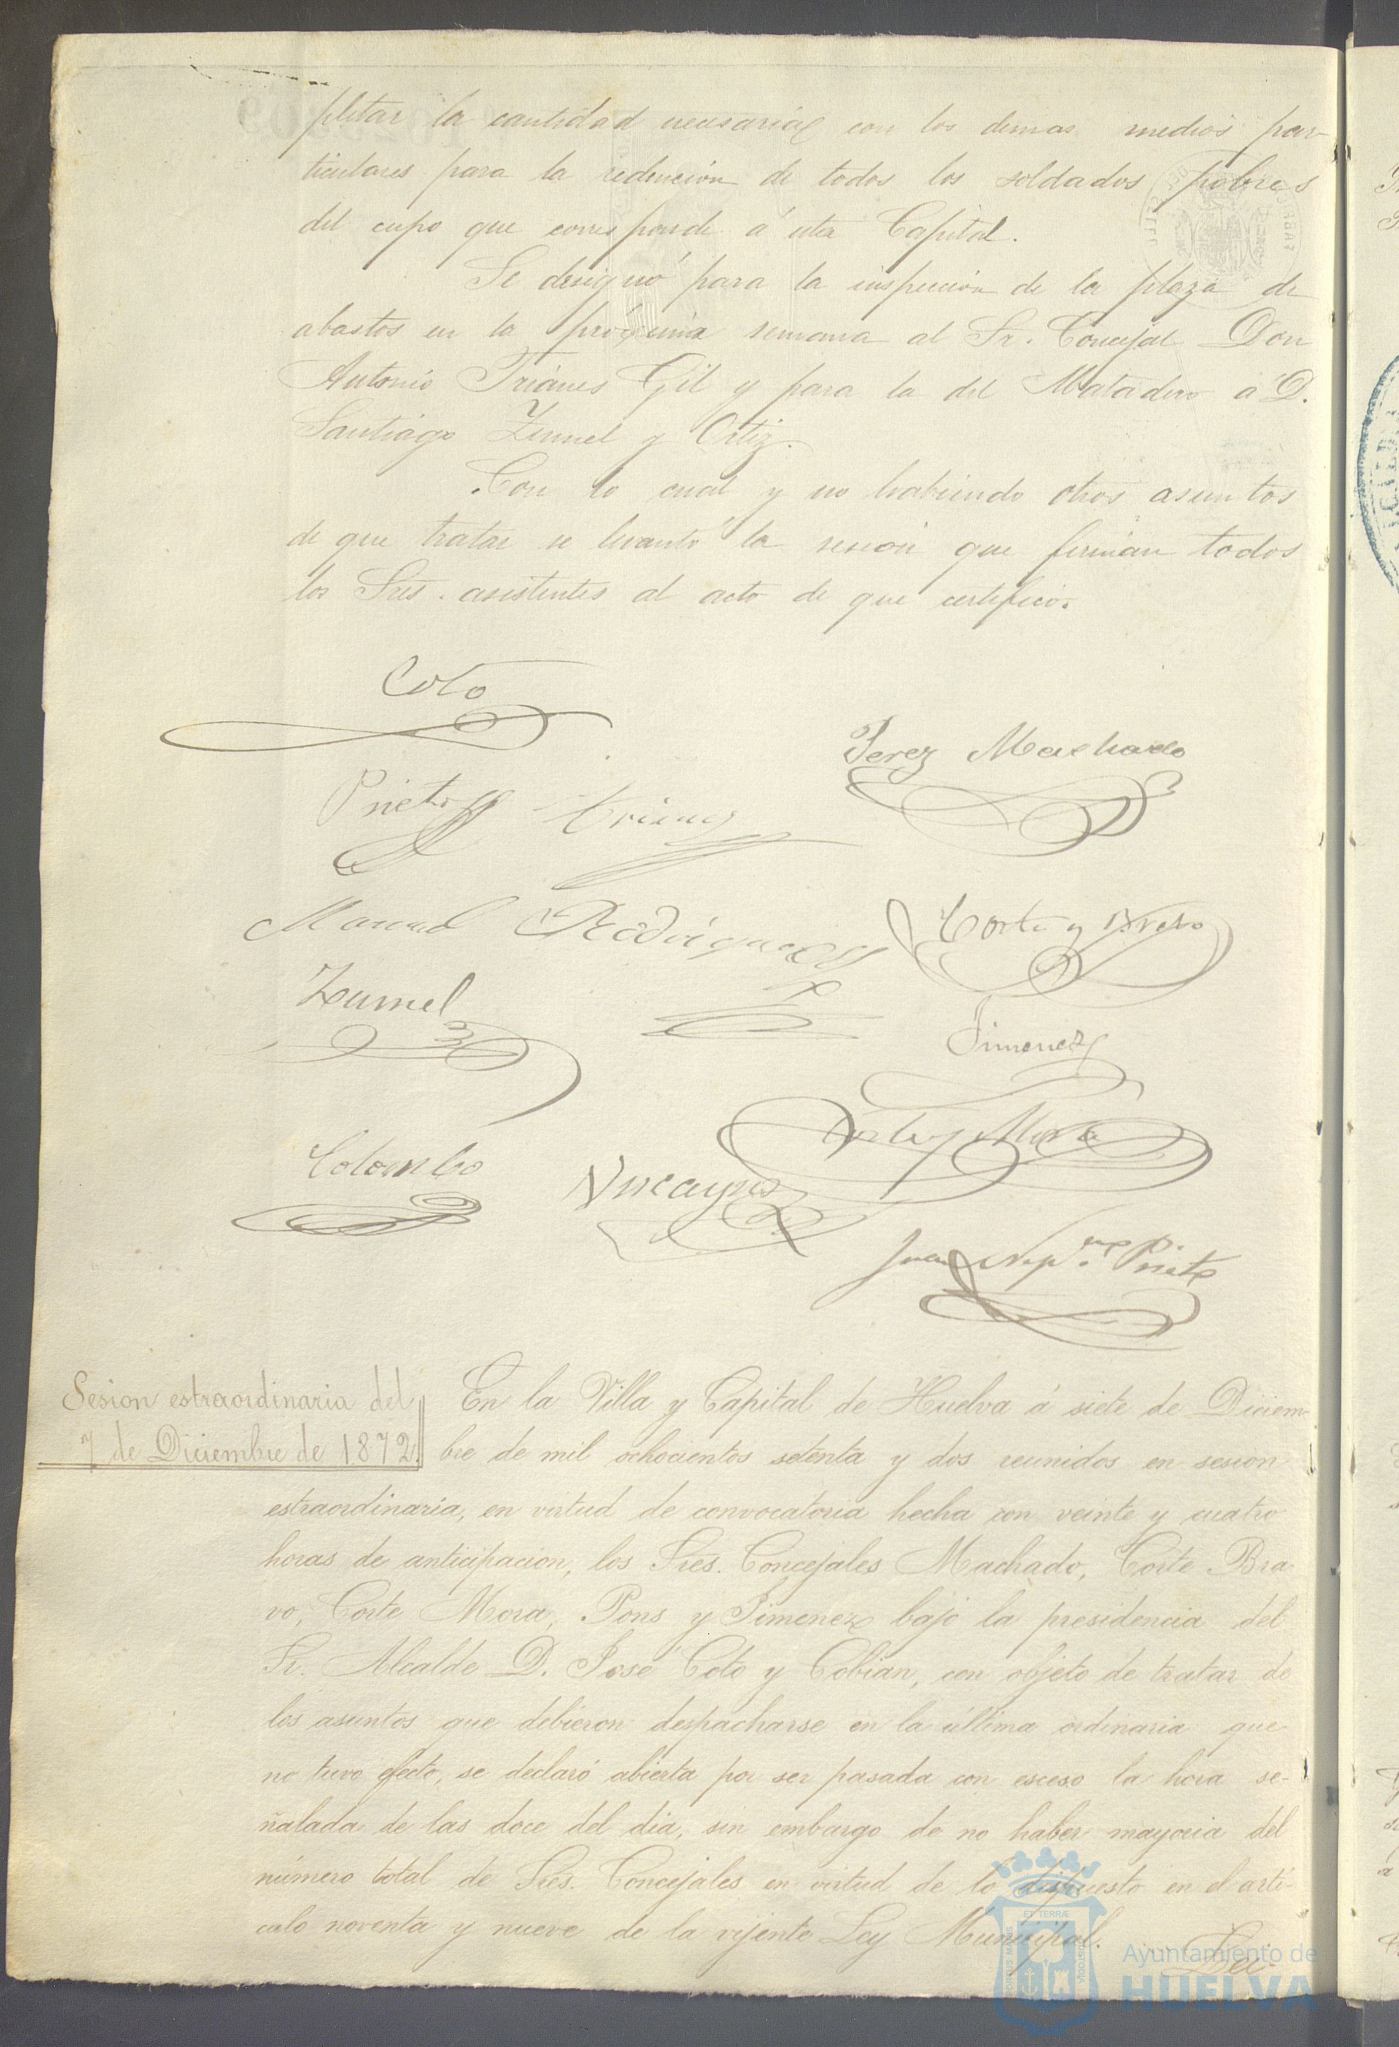 pletar la cantidad necesaria con los demas medios par-
ticulares para la redencion de todos los soldados pobres
del cupo que corresponde á esta Capital.
Se designó para la inspeccion de la plaza de
abastos en la próxima semana al Sr. Concejal Don
Antonio Trianes Gil y para la del Matadero a D.
Santiago Zumel y Ortiz.
Con lo cual y no habiendo otros asuntos
de que tratar se levantó la sesion que firman todos
los Sres. asistentes al acto de que certifico.
Coto
Perez Machado
Prieto
Trianes
Manuel Rodriguez
Corte y Bravo
Zumel
Jimenez
Corte y Mora
Colombo
Juan Nep.ne Prieto
Sesion estraordinaria del
7 de Diciembre de 1872.
En la Villa y Capital de Huelva á siete de Diciem-
bre de mil ochocientos setenta y dos reunidos en sesion
estraordinaria, en virtud de convocatoria hecha con veinte y cuatro
horas de anticipacion, los Sres. Concejales Machado, Corte Bra-
vo, Corte Mora, Pons y Jimenez bajo la presidencia del
Sr. Alcalde D. José Coto y Cobian, con objeto de tratar de
los asuntos que debieron despacharse en la última ordinaria que
no tuvo efecto, se declaró abierta por ser pasada con esceso la hora se-
ñalada de las doce del dia, sin embargo de no haber mayoria del
número total de Sres. Concejales en virtud de lo dispuesto en el arti-
culo noventa y nueve de la vijente Ley Municipal.
Ayuntamiento de
HUELVA